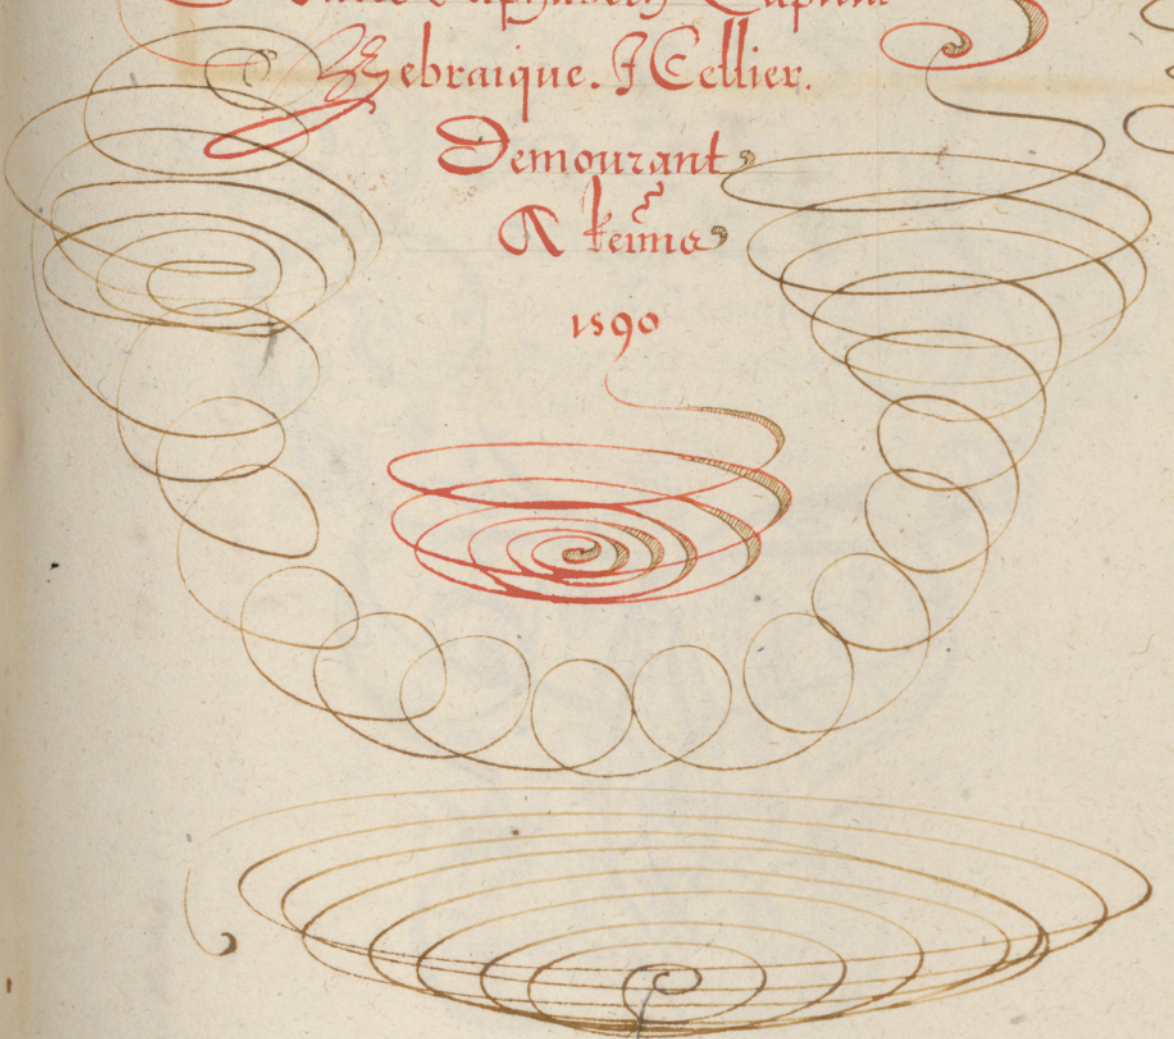 Hebraique. J Cellier.
Demourant
A Reims
1590